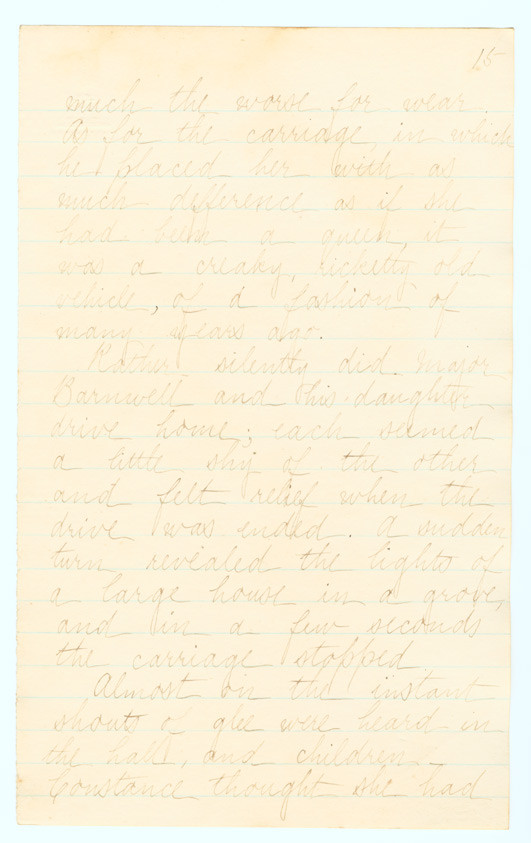 15
much the worse for wear.
As for the carriage in which
he placed her with as
much defference as if she
had been a queen, it
was a creaky, ricketty old
vehicle, of a fashion of
many years ago.
Rather silently did Major
Barnwell and his daughter
drive home; each seemed
a little shy of the other
and felt relief when the
drive was ended. A sudden
turn revealed the lights of
a large house in a grove,
and in a few seconds
the carriage stopped
Almost on the instant
shouts of glee were heard in
the hall, and children -
Constance thought she had